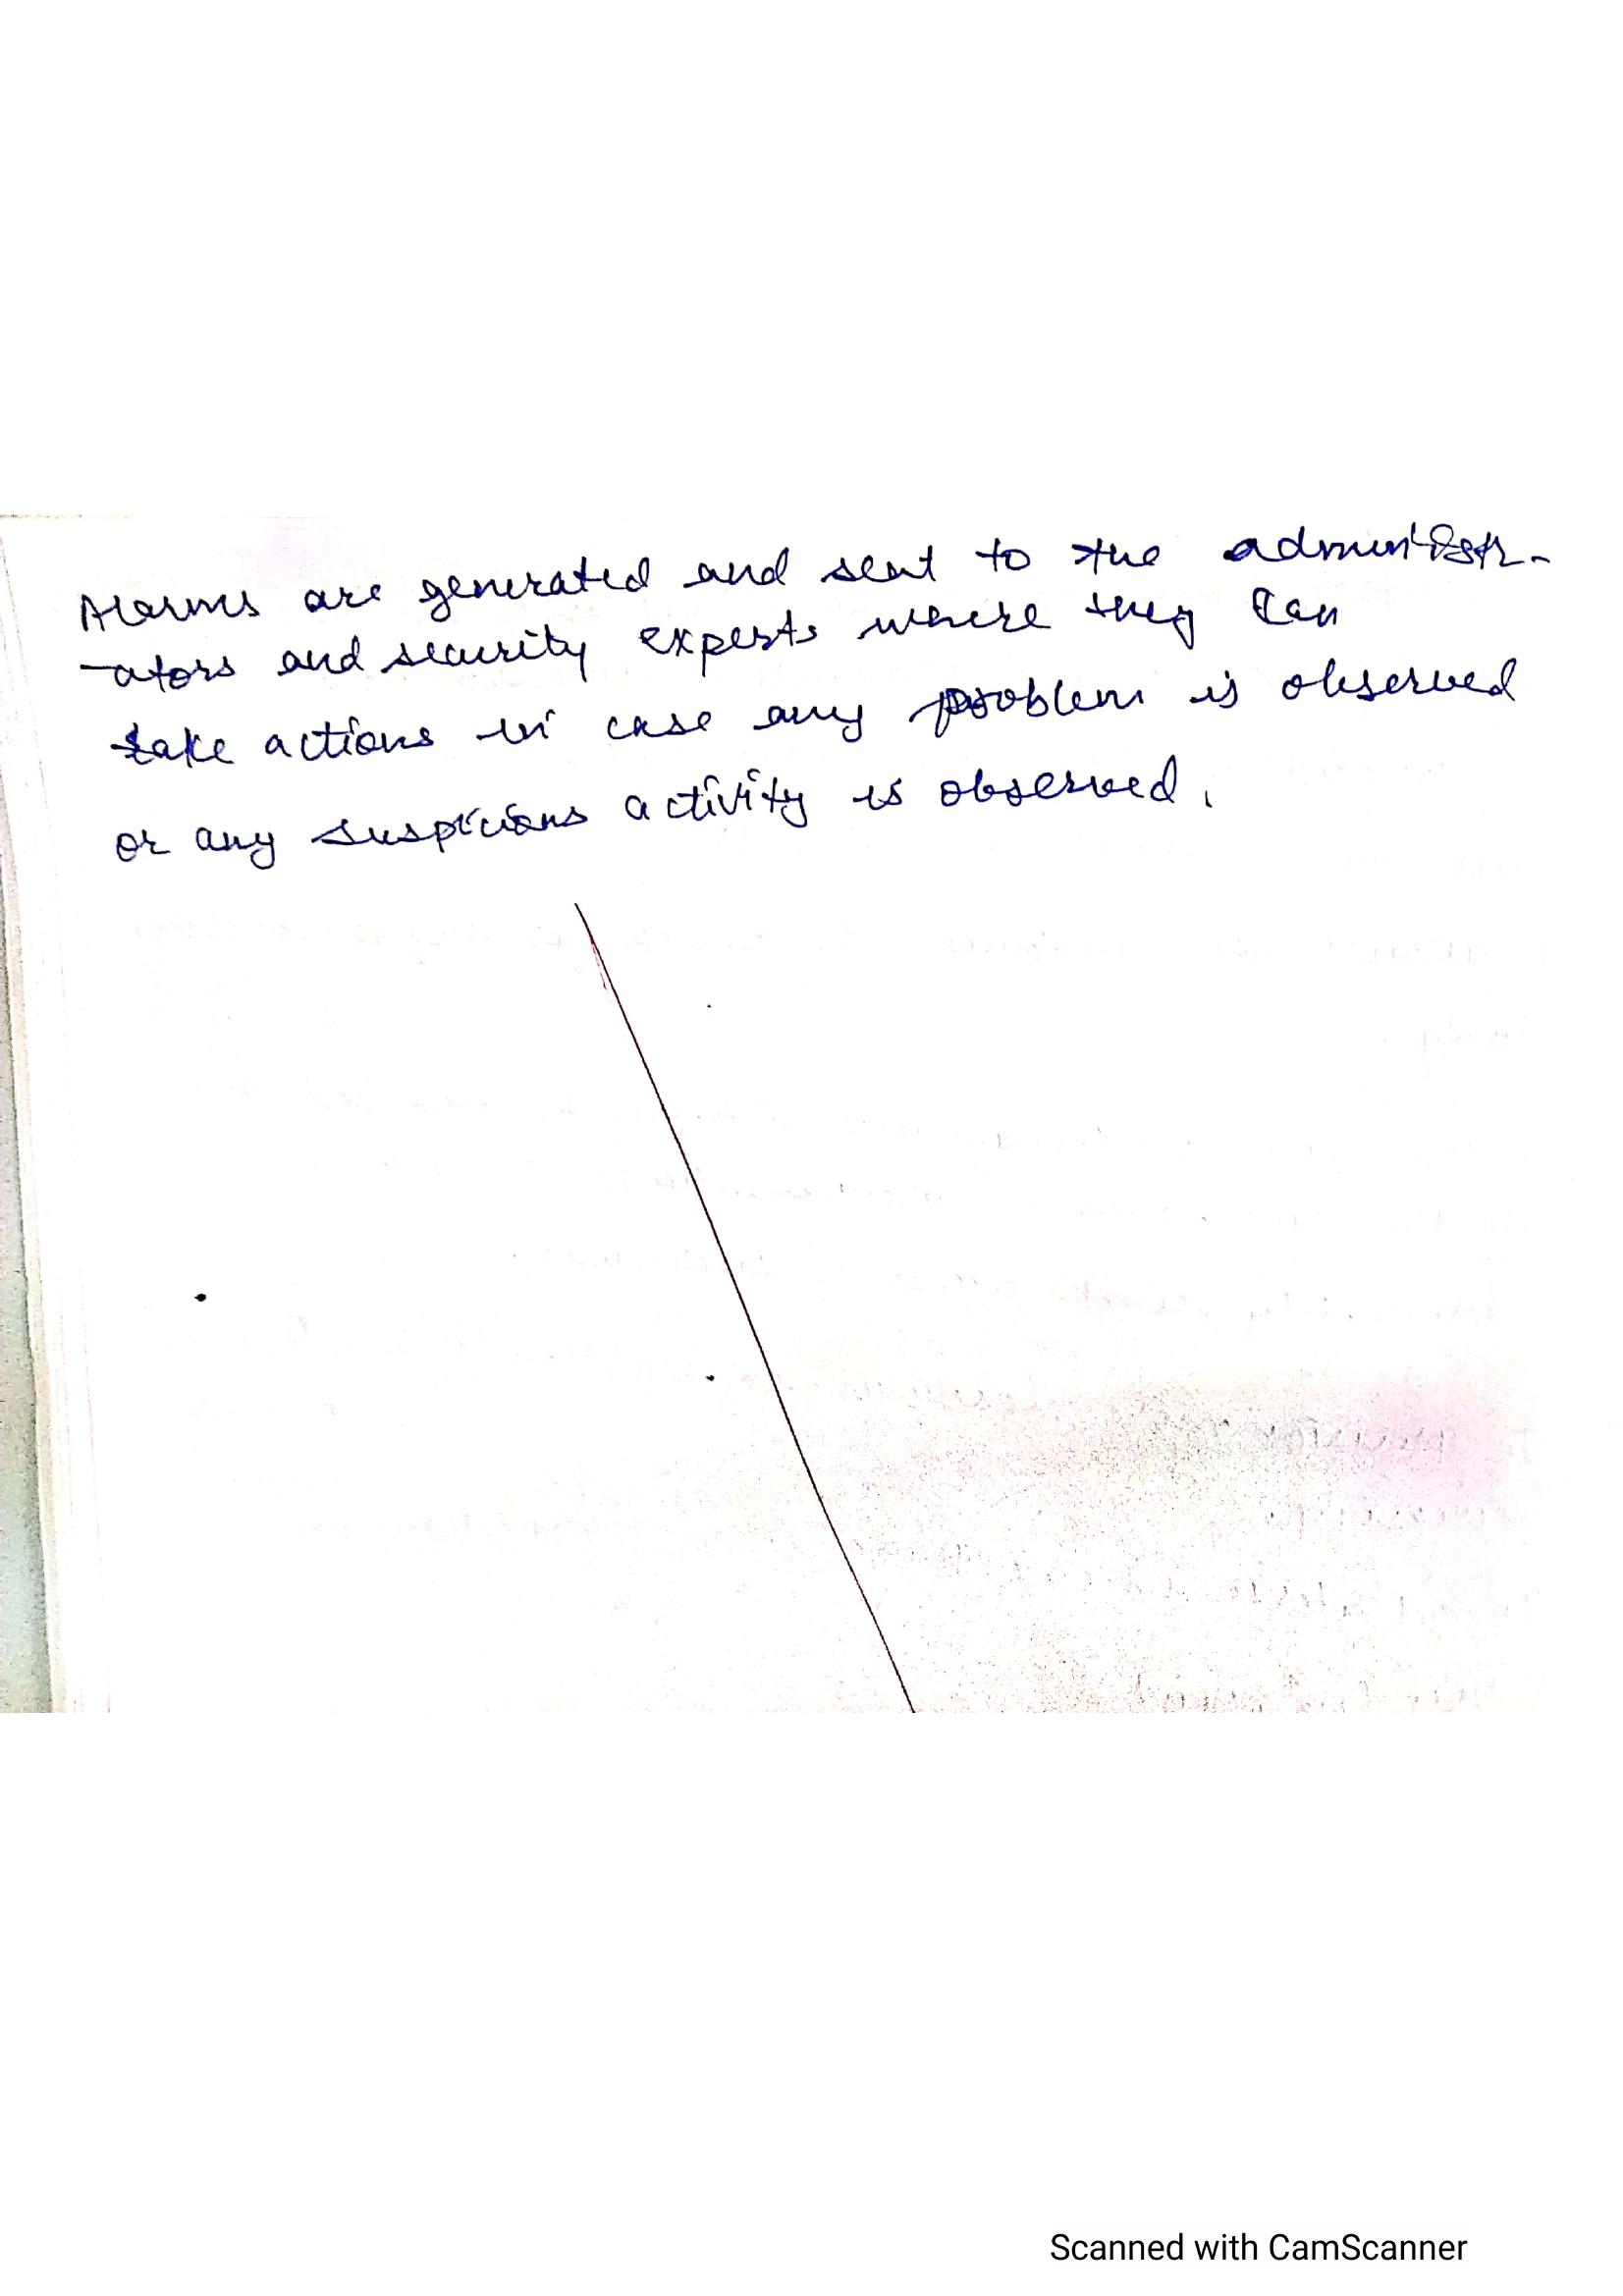 Alarms are generated and sent to the administr-
-ators and security experts where they can
take actions in case any problem is observed
or any suspicious activity is observed.
Scanned with CamScanner